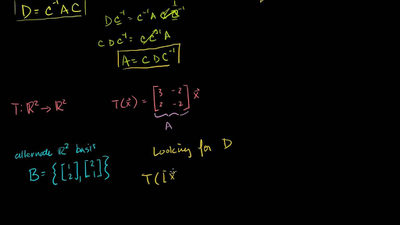 D = C⁻¹AC
DC⁻¹ = C⁻¹A C C⁻¹
CDC⁻¹ = C C⁻¹ A
A = CDC⁻¹
T: ℝ² → ℝ²
T(x⃗) = [3 -2; 2 -2] x⃗
A
alternate ℝ² basis
Looking for D
B = {[1; 2], [2; 1]}
T([x⃗